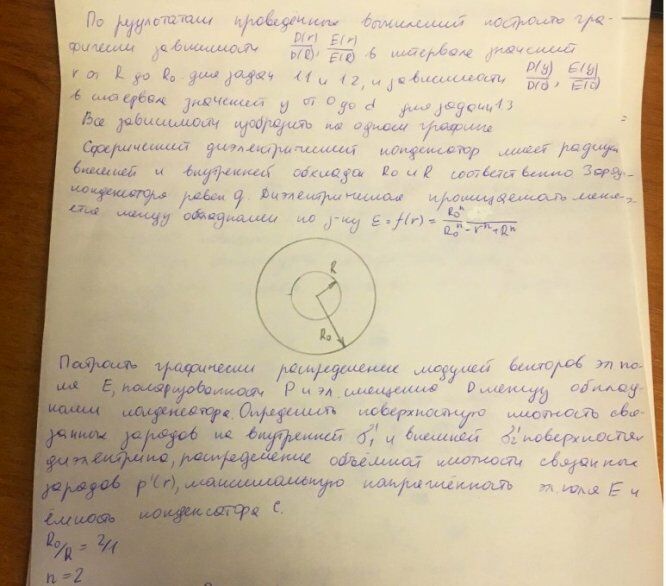 По результатам проведённых вычислений построить гра-
фически зависимости D(r)/D(R), E(r)/E(R) в интервале значений
r от R до R₀ для задач 1.1 и 1.2, и зависимости D(y)/D(d), E(y)/E(d)
в интервале значений y от 0 до d для задачи 1.3
Все зависимости изобразить на одном графике
Сферический диэлектрический конденсатор имеет радиусы
внешней и внутренней обкладок R₀ и R соответственно. Заряд
конденсатора равен q. Диэлектрическая проницаемость меня-
ется между обкладками по з-ну ε = f(r) = R₀ⁿ/(R₀ⁿ - rⁿ + Rⁿ)
R
R₀
Построить графически распределение модулей векторов эл. по-
ля E, поляризованности P и эл. смещения D между обклад-
ками конденсатора. Определить поверхностную плотность свя-
занных зарядов на внутренней σ₁' и внешней σ₂' поверхностях
диэлектрика, распределение объёмной плотности связанных
зарядов ρ'(r), максимальную напряжённость эл. поля E и
ёмкость конденсатора C.
R₀/R = 2/1
n = 2